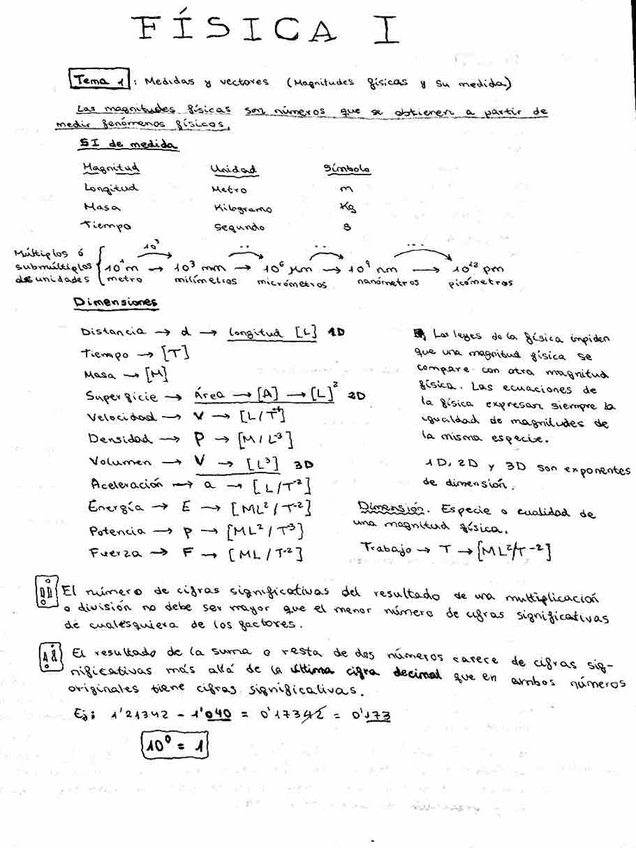 FÍSICA I
Tema 1: Medidas y vectores (Magnitudes físicas y su medida)
Las magnitudes físicas son números que se obtienen a partir de
medir fenómenos físicos.
SI de medida
Magnitud Unidad Símbolo
Longitud Metro m
Masa Kilogramo Kg
Tiempo Segundo s
Múltiplos ó
submúltiplos
de unidades
10³ .. .. ...
10⁰m → 10³ mm → 10⁶ μm → 10⁹ nm → 10¹² pm
metro milímetros micrómetros nanómetros picómetros
Dimensiones
Distancia → d → longitud [L] 1D
Tiempo → [T]
Masa → [M]
Superficie → Área → [A] → [L]² 2D
Velocidad → V → [L/T⁻¹]
Densidad → P → [M/L³]
Volumen → V → [L³] 3D
Aceleración → a → [L/T⁻²]
Energía → E → [ML²/T⁻²]
Potencia → P → [ML²/T³]
Fuerza → F → [ML/T⁻²]
Las leyes de la física impiden
que una magnitud física se
compare con otra magnitud
física. Las ecuaciones de
la física expresan siempre la
igualdad de magnitudes de
la misma especie.
1D, 2D y 3D son exponentes
de dimensión.
Dimensión. Especie o cualidad de
una magnitud física.
Trabajo → T → [ML²/T⁻²]
El número de cifras significativas del resultado de una multiplicación
o división no debe ser mayor que el menor número de cifras significativas
de cualesquiera de los factores.
El resultado de la suma o resta de dos números carece de cifras sig-
nificativas más allá de la última cifra decimal que en ambos números
originales tiene cifras significativas.
Ej: 1'21342 - 1'040 = 0'17342 = 0'173
10⁰ = 1